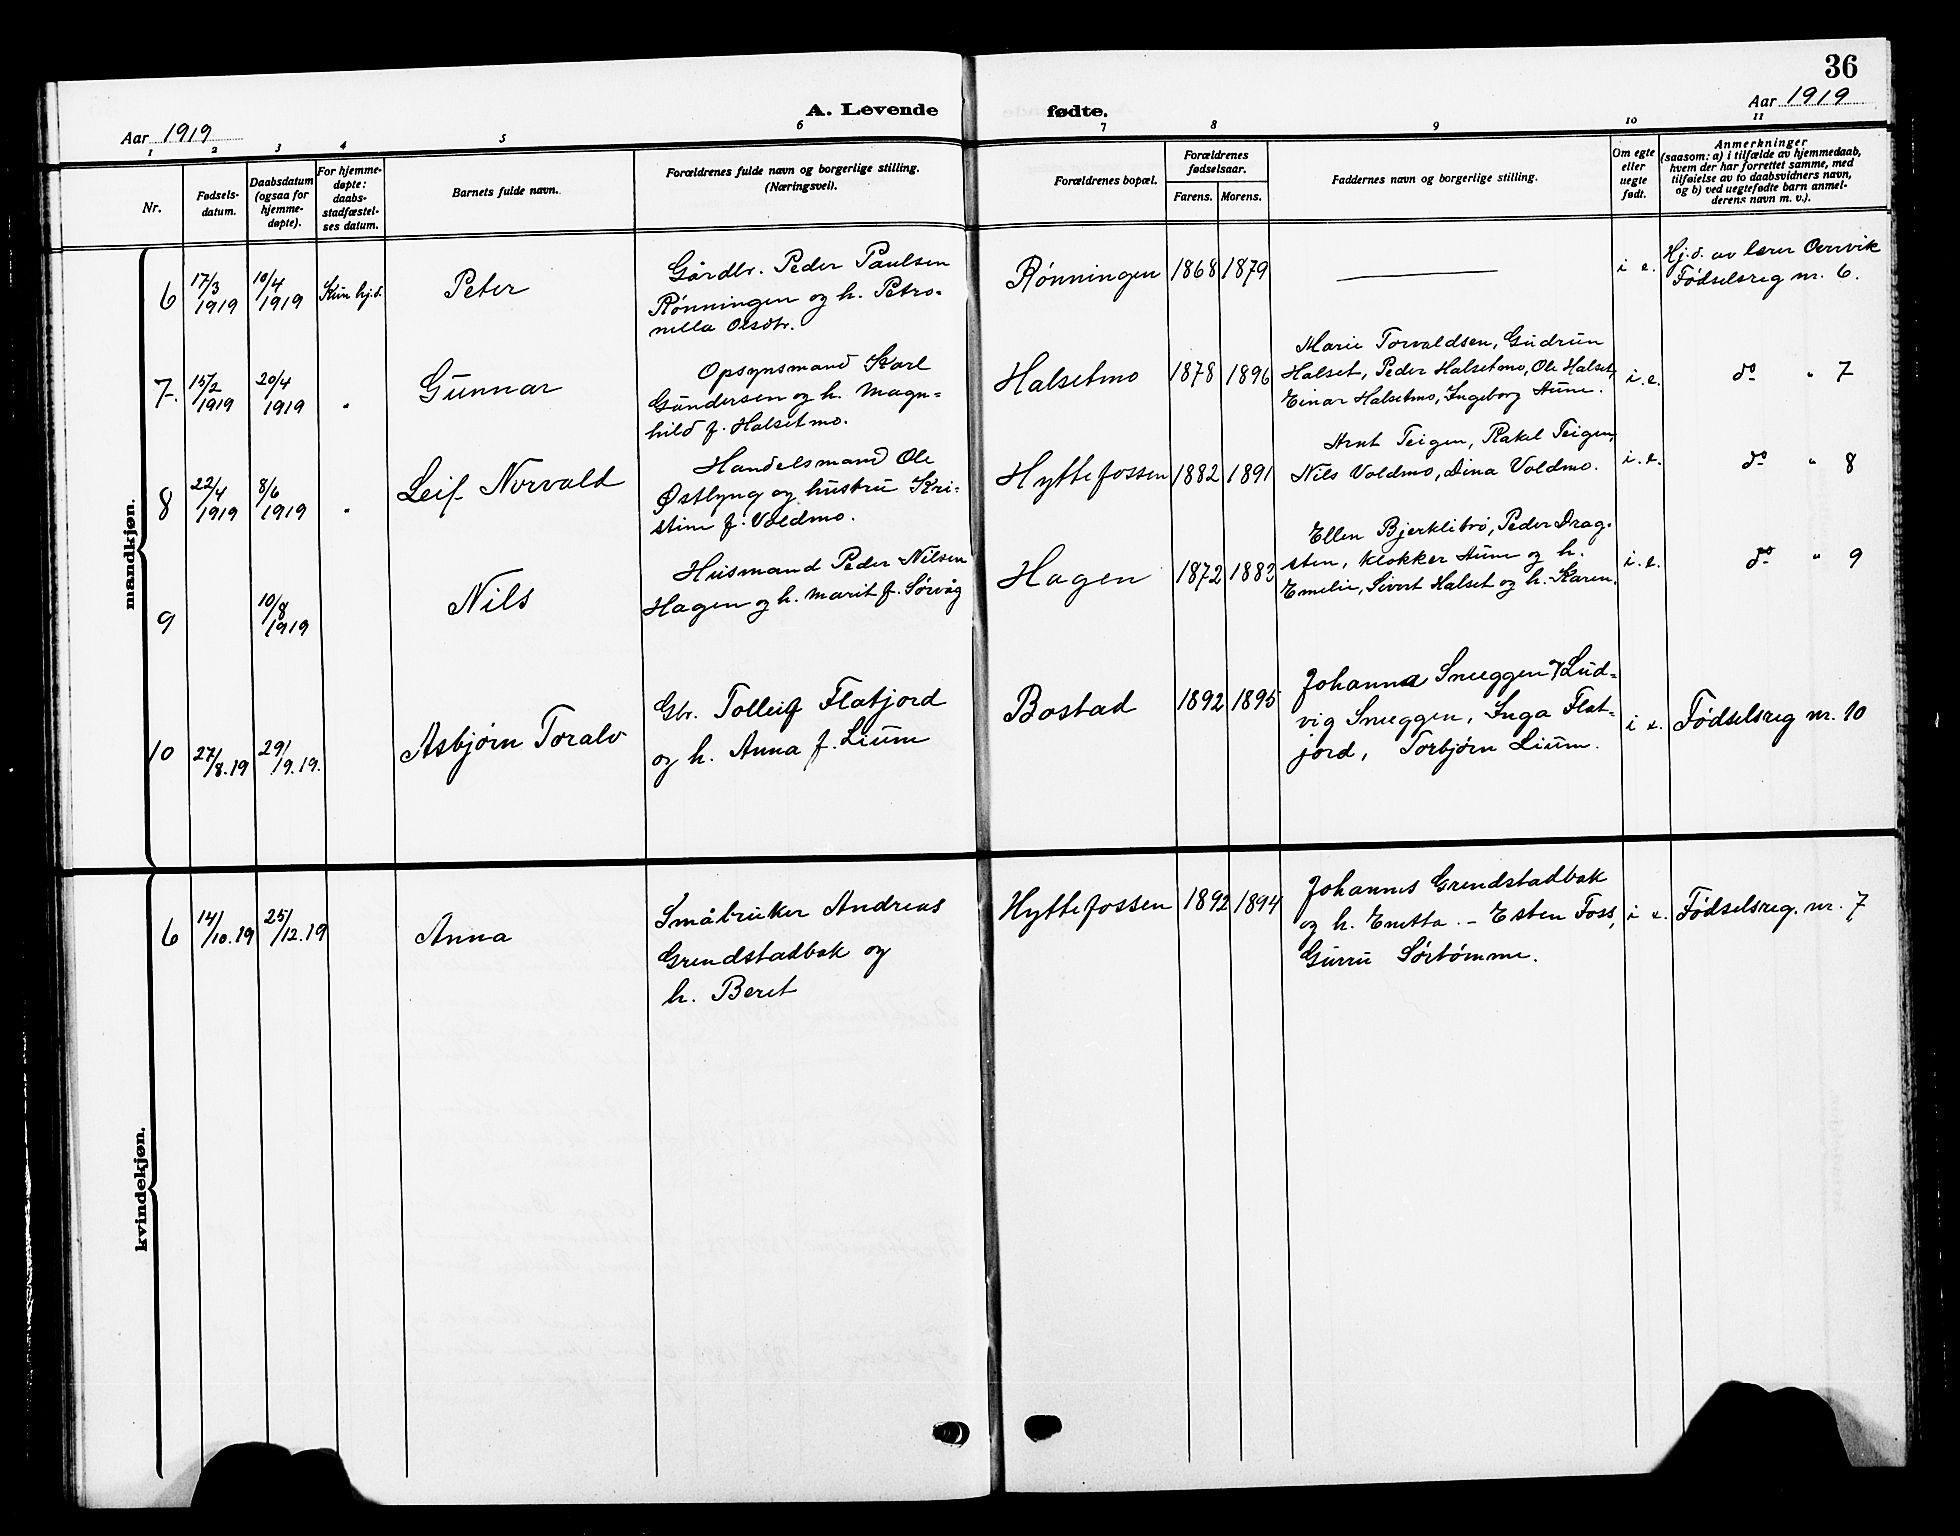 36
A. Levende fødte.
Aar 1919
Aar 1919
1 2 3 4 5 6 7 8 9 10 11
Nr.
Fødsels-
datum.
Daabsdatum
(ogsaa for
hjemme-
døpte).
For hjemme-
døpte:
daabs-
stadfæstel-
ses datum.
Barnets fulde navn.
Forældrenes fulde navn og borgerlige stilling.
(Næringsvei).
Forældrenes bopæl.
Forældrenes
fødselsaar.
Farens. Morens.
Faddernes navn og borgerlige stilling.
Om egte
eller
uegte
født.
Anmerkninger
(saasom: a) i tilfælde av hjemmedaab,
hvem der har forrettet samme, med
tilføielse av to daabsvidners navn,
og b) ved uegtefødte barn anmel-
derens navn m. v.).
mandkjøn.
6 17/3 1919 10/4 1919 Kun hj.d. Peter
Gårdbr. Peder Paulsen
Rönningen og h. Petro-
nella Olsdtr.
Rönningen 1868 1879 — i e.
Hj.d. av lærer
Fødselsreg nr. 6.
7. 15/2 1919 20/4 1919 " Gunnar
Opsynsmand Karl
Gundersen og h. Magn=
hild f. Halsetmo.
Halsetmo 1878 1896
Marie Torvaldsen, Gudrun
Halset, Peder Halsetmo, Ole Halset,
Einar Halsetmo, Ingeborg Hune.
i. e. do " 7
8 22/4 1919 8/6 1919 " Leif Norvald
Handelsmand Ole
Østlyng og hustru Kri-
stine f. Voldmo.
Hyttefossen 1882 1891
Arnt Teigen, Rakel Teigen,
Nils Voldmo, Dina Voldmo.
i. e. do " 8
9 10/8 1919 Nils
Husmand Peder Nilsen
Hagen og h. Marit f. Sørvåg
Hagen 1872 1883
Ellen Bjerklibrö, Peder Drag-
sten, klokker Hune og h.
Emelie, Sivert Halset og h. Karen.
i. e. do " 9
10 27/8.19 29/9.19. Asbjørn Toralv
Gbr. Tolleif Flatjord
og h. Anna f. Lium
Bostad 1892 1895
Johanna Snueggen, Lud-
vig Snueggen, Inga Flat-
jord, Torbjørn Lium.
i e. Fødselsreg nr. 10
kvindekjøn.
6 14/10.19 25/12.19 Anna
Småbruker Andreas
Grendstadbak og
h. Beret
Hyttefossen 1892 1894
Johannes Grendstadbak
og h. Enetta. – Esten Foss,
Gurru Sørtømme.
i e. Fødselsreg. nr. 7